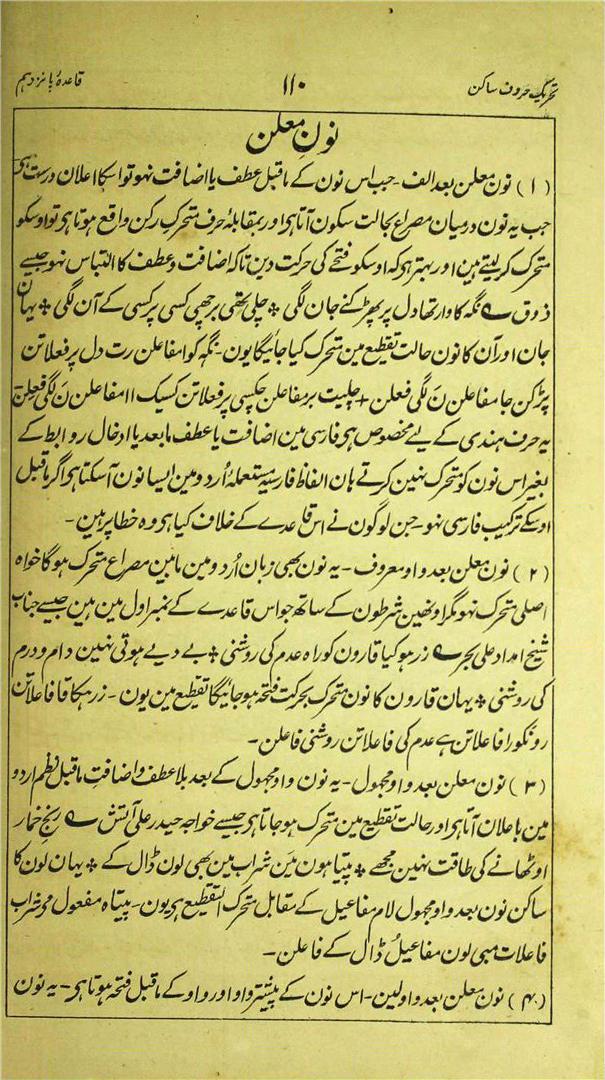 تحریک حروف ساکن ۱۱۰ قاعدۂ پانزدہم
نونِ معلن
(۱) نون معلن بعد الف - جب اس نون کے ماقبل عطف یا اضافت نہو تو اسکا اعلان درست ہی
جب یہ نون درمیان مصراع بحالت سکون آتا ہی اور بمقابلۂ حرف متحرک رکن واقع ہوتا ہی تو اوسکو
متحرک کر لیتے ہین اور بہتر ہی کہ اوسکو فتحے کی حرکت دین تاکہ اضافت و عطف کا التباس نہو جیسے
ذوق ؎ نگہ کا وار تھا دل پر پھڑکنے جان لگی ٭ چلی تھی برچھی کسی پر کسی کے آن لگی ٭ یہان
جان اور آن کا نون حالت تقطیع مین متحرک کیا جائیگا یون - نگہ کوا مفاعلن رت دل پر فعلاتن
پڑکن جا مفاعلن نَ لگی فعلن + چلیت بر مفاعلن چکسی پر فعلاتن کسیک اا مفاعلن نَ لگی فعِلن
یہ حرف ہندی کے لیے مخصوص ہی فارسی مین اضافت یا عطف مابعد یا ادخال روابط کے
بغیر اس نون کو متحرک نہین کرتے ہان الفاظ فارسیہ مستعملۂ اُردو مین ایسا نون آسکتا ہی اگر ماقبل
اوسکے ترکیب فارسی نہو - جن لوگون نے اس قاعدے کے خلاف کیا ہی وہ خطا پر ہین -
(۲) نون معلن بعد واو معروف - یہ نون بھی زبان اُردو مین مابین مصراع متحرک ہوگا خواہ
اصلی متحرک نہو مگر اونھین شرطون کے ساتھ جو اس قاعدے کے نمبر اول مین ہین جیسے جناب
شیخ امداد علی بحر ؎ زر ہوگیا قارون کو راہ عدم کی روشنی ٭ بے دیے ہوتی نہین دام و درم
کی روشنی ٭ یہان قارون کا نون متحرک بحرکت فتحہ ہو جائیگا تقطیع مین یون - زر ہکا قا فاعلاتن
رونکو را فاعلاتن ہے عدم کی فاعلاتن روشنی فاعلن -
(۳) نون معلن بعد واو مجہول - یہ نون واو مجہول کے بعد بلا عطف و اضافتِ ماقبل نظم اردو
مین باعلان آتا ہی اور حالت تقطیع مین متحرک ہو جاتا ہی جیسے خواجہ حیدر علی آتش ؎ رنجِ خمار
اوٹھانے کی طاقت نہین مجھے ٭ پیتا ہون مین شراب مین بھی لون ڈال کے ٭ یہان لون کا
ساکن نون بعد واو مجہول لام مفاعیل کے مقابل متحرک التقطیع ہی یون - پیتاہ مفعول مَی شراب
فاعلات مبی لون مفاعیلُ ڈال کے فاعلن -
(۴) نون معلن بعد واو لین - اس نون کے پیشتر واو اور واو کے ماقبل فتحہ ہوتا ہی - یہ نون